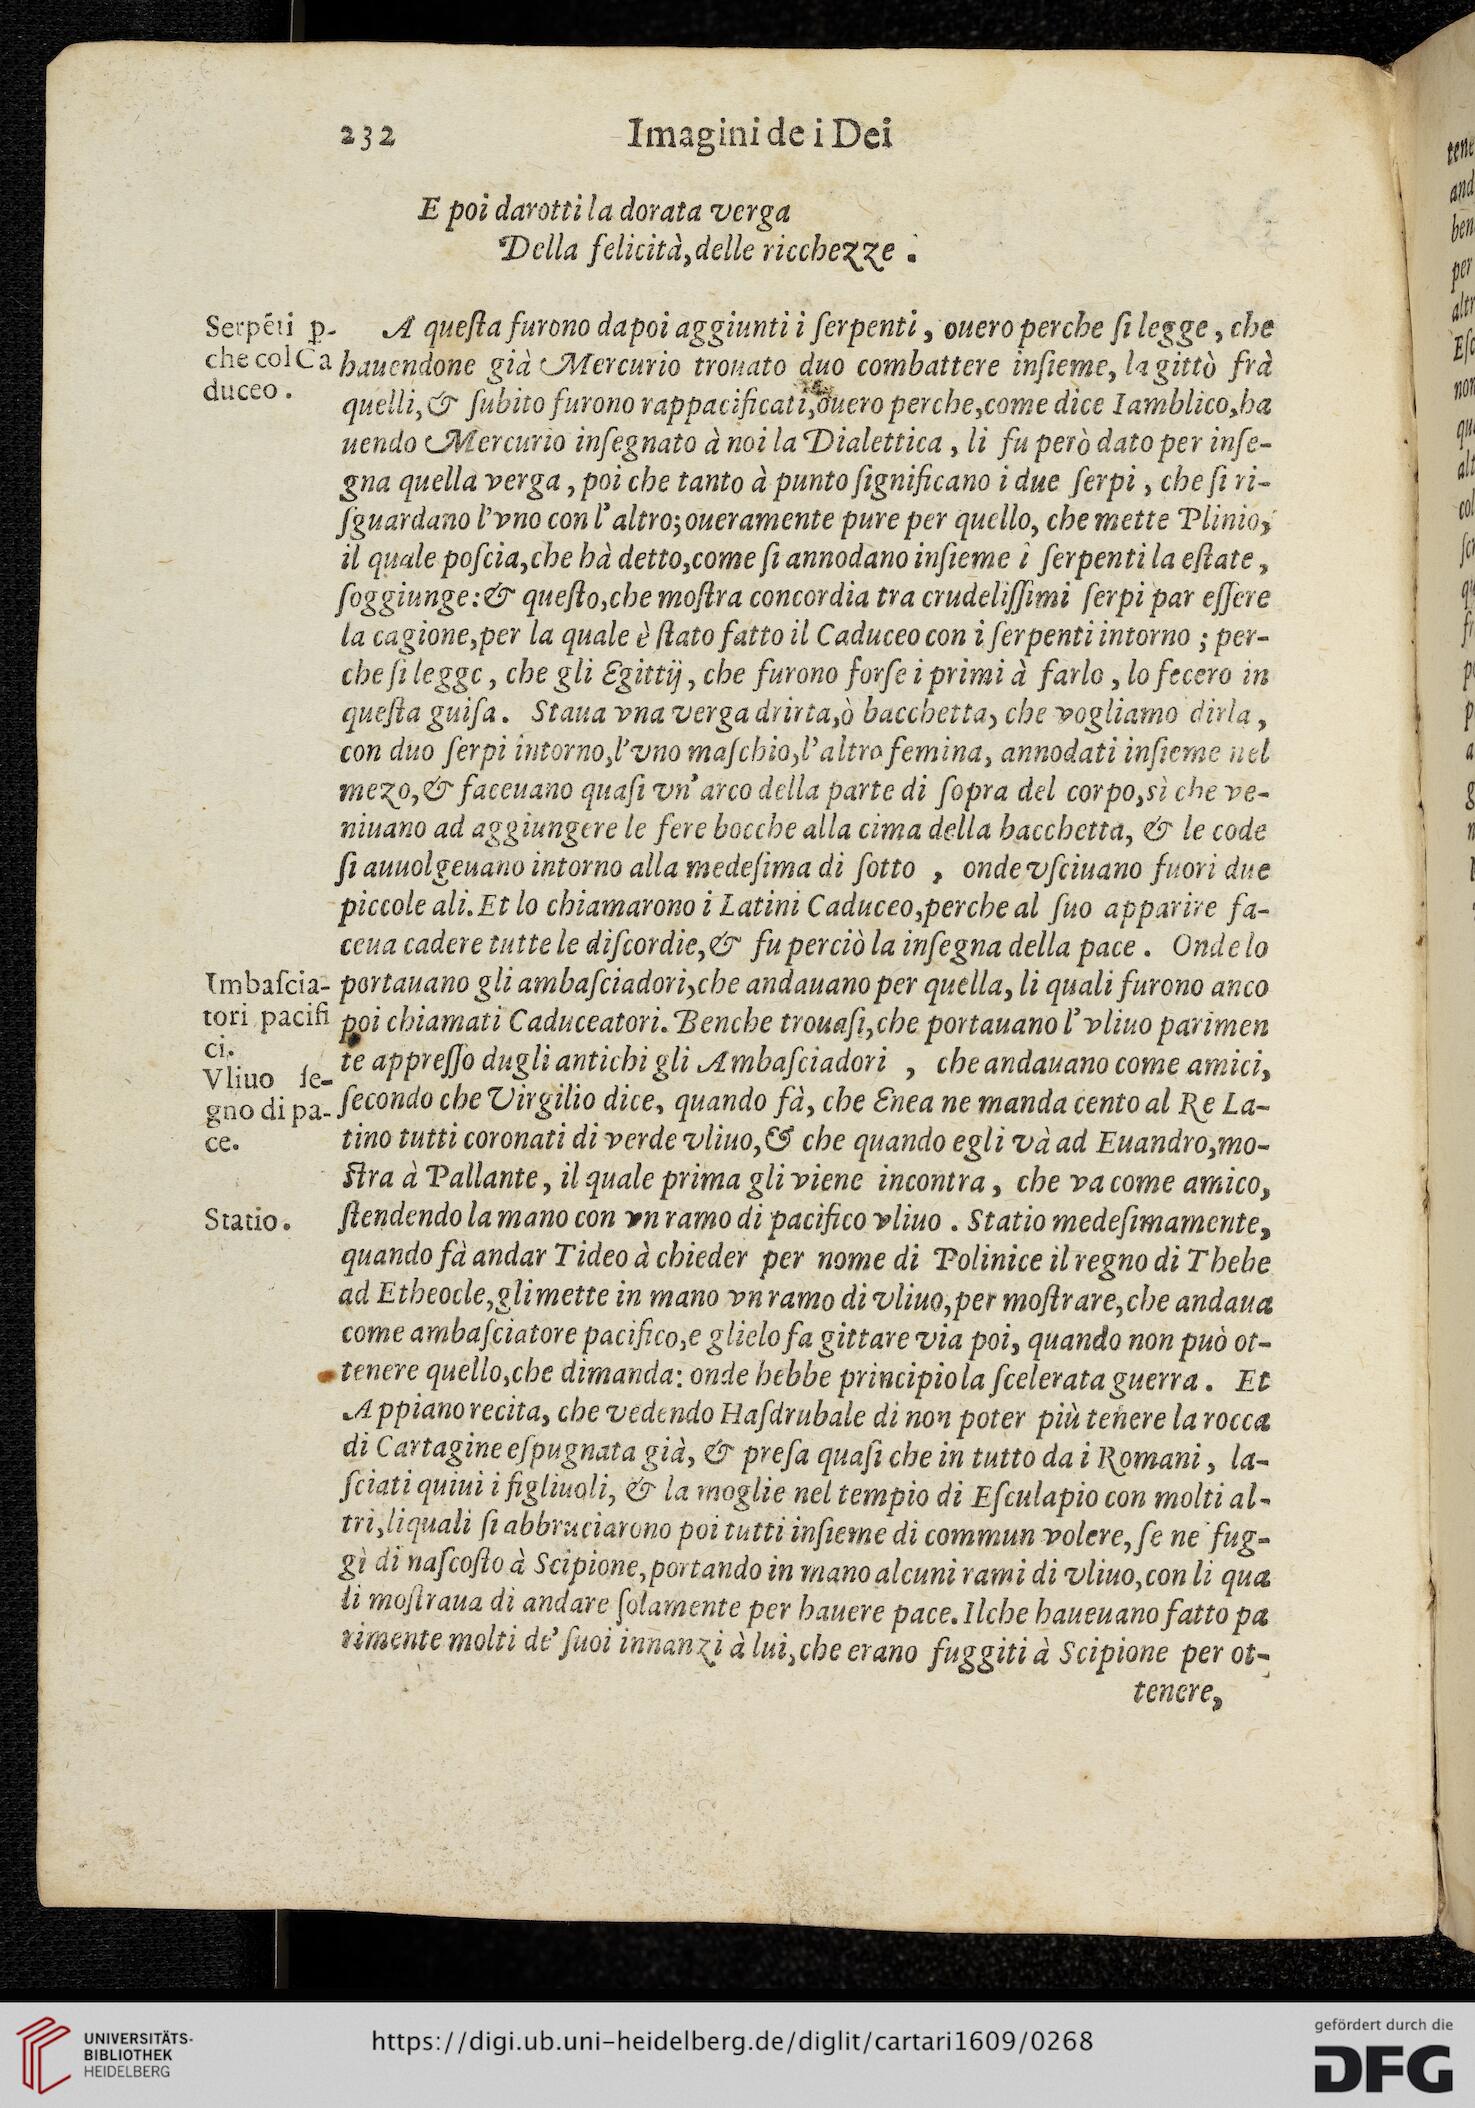 232 Imagini de i Dei
E poi darotti la dorata verga
Della felicità, delle ricchezze.
Serpẽti p̱-
che col Ca
duceo.
A queſta furono dapoi aggiunti i ſerpenti, ouero perche ſi legge, che
hauendone già Mercurio trouato duo combattere inſieme, la gittò frà
quelli, & ſubito furono rappacificati, ouero perche, come dice Iamblico, ha
uendo Mercurio inſegnato à noi la Dialettica, li fu però dato per inſe-
gna quella verga, poi che tanto à punto ſignificano i due ſerpi, che ſi ri-
ſguardano l'vno con l'altro; oueramente pure per quello, che mette Plinio,
il quale poſcia, che hà detto, come ſi annodano inſieme i ſerpenti la eſtate,
ſoggiunge: & queſto, che moſtra concordia tra crudeliſſimi ſerpi par eſſere
la cagione, per la quale è ſtato fatto il Caduceo con i ſerpenti intorno; per-
che ſi legge, che gli Egittij, che furono forſe i primi à farlo, lo fecero in
queſta guiſa. Staua vna verga drirta, ò bacchetta, che vogliamo dirla,
con duo ſerpi intorno, l'vno maſchio, l'altro femina, annodati inſieme nel
mezo, & faceuano quaſi vn'arco della parte di ſopra del corpo, sì che ve-
niuano ad aggiungere le fere bocche alla cima della bacchetta, & le code
ſi auuolgeuano intorno alla medeſima di ſotto, onde vſciuano fuori due
piccole ali. Et lo chiamarono i Latini Caduceo, perche al ſuo apparire fa-
ceua cadere tutte le diſcordie, & fu perciò la inſegna della pace. Onde lo
Imbaſcia-
tori pacifi
ci.
Vliuo ſe-
gno di pa-
ce.
portauano gli ambaſciadori, che andauano per quella, li quali furono anco
poi chiamati Caduceatori. Benche trouaſi, che portauano l'vliuo parimen
te appreſſo dugli antichi gli Ambaſciadori, che andauano come amici,
ſecondo che Virgilio dice, quando fà, che Enea ne manda cento al Re La-
tino tutti coronati di verde vliuo, & che quando egli và ad Euandro, mo-
ſtra à Pallante, il quale prima gli viene incontra, che va come amico,
Statio.
ſtendendo la mano con vn ramo di pacifico vliuo. Statio medeſimamente,
quando fà andar Tideo à chieder per nome di Polinice il regno di Thebe
ad Etheocle, gli mette in mano vn ramo di vliuo, per moſtrare, che andaua
come ambaſciatore pacifico, e glielo fa gittare via poi, quando non può ot-
tenere quello, che dimanda: onde hebbe principio la ſcelerata guerra. Et
Appiano recita, che vedendo Haſdrubale di non poter più tenere la rocca
di Cartagine eſpugnata già, & preſa quaſi che in tutto da i Romani, la-
ſciati quiui i figliuoli, & la moglie nel tempio di Eſculapio con molti al-
tri, li quali ſi abbruciarono poi tutti inſieme di commun volere, ſe ne fug-
gì di naſcoſto à Scipione, portando in mano alcuni rami di vliuo, con li qua
li moſtraua di andare ſolamente per hauere pace. Ilche haueuano fatto pa
rimente molti de' ſuoi innanzi à lui, che erano fuggiti à Scipione per ot-
tenere,
UNIVERSITÄTS-
BIBLIOTHEK
HEIDELBERG
https://digi.ub.uni-heidelberg.de/diglit/cartari1609/0268
gefördert durch die
DFG